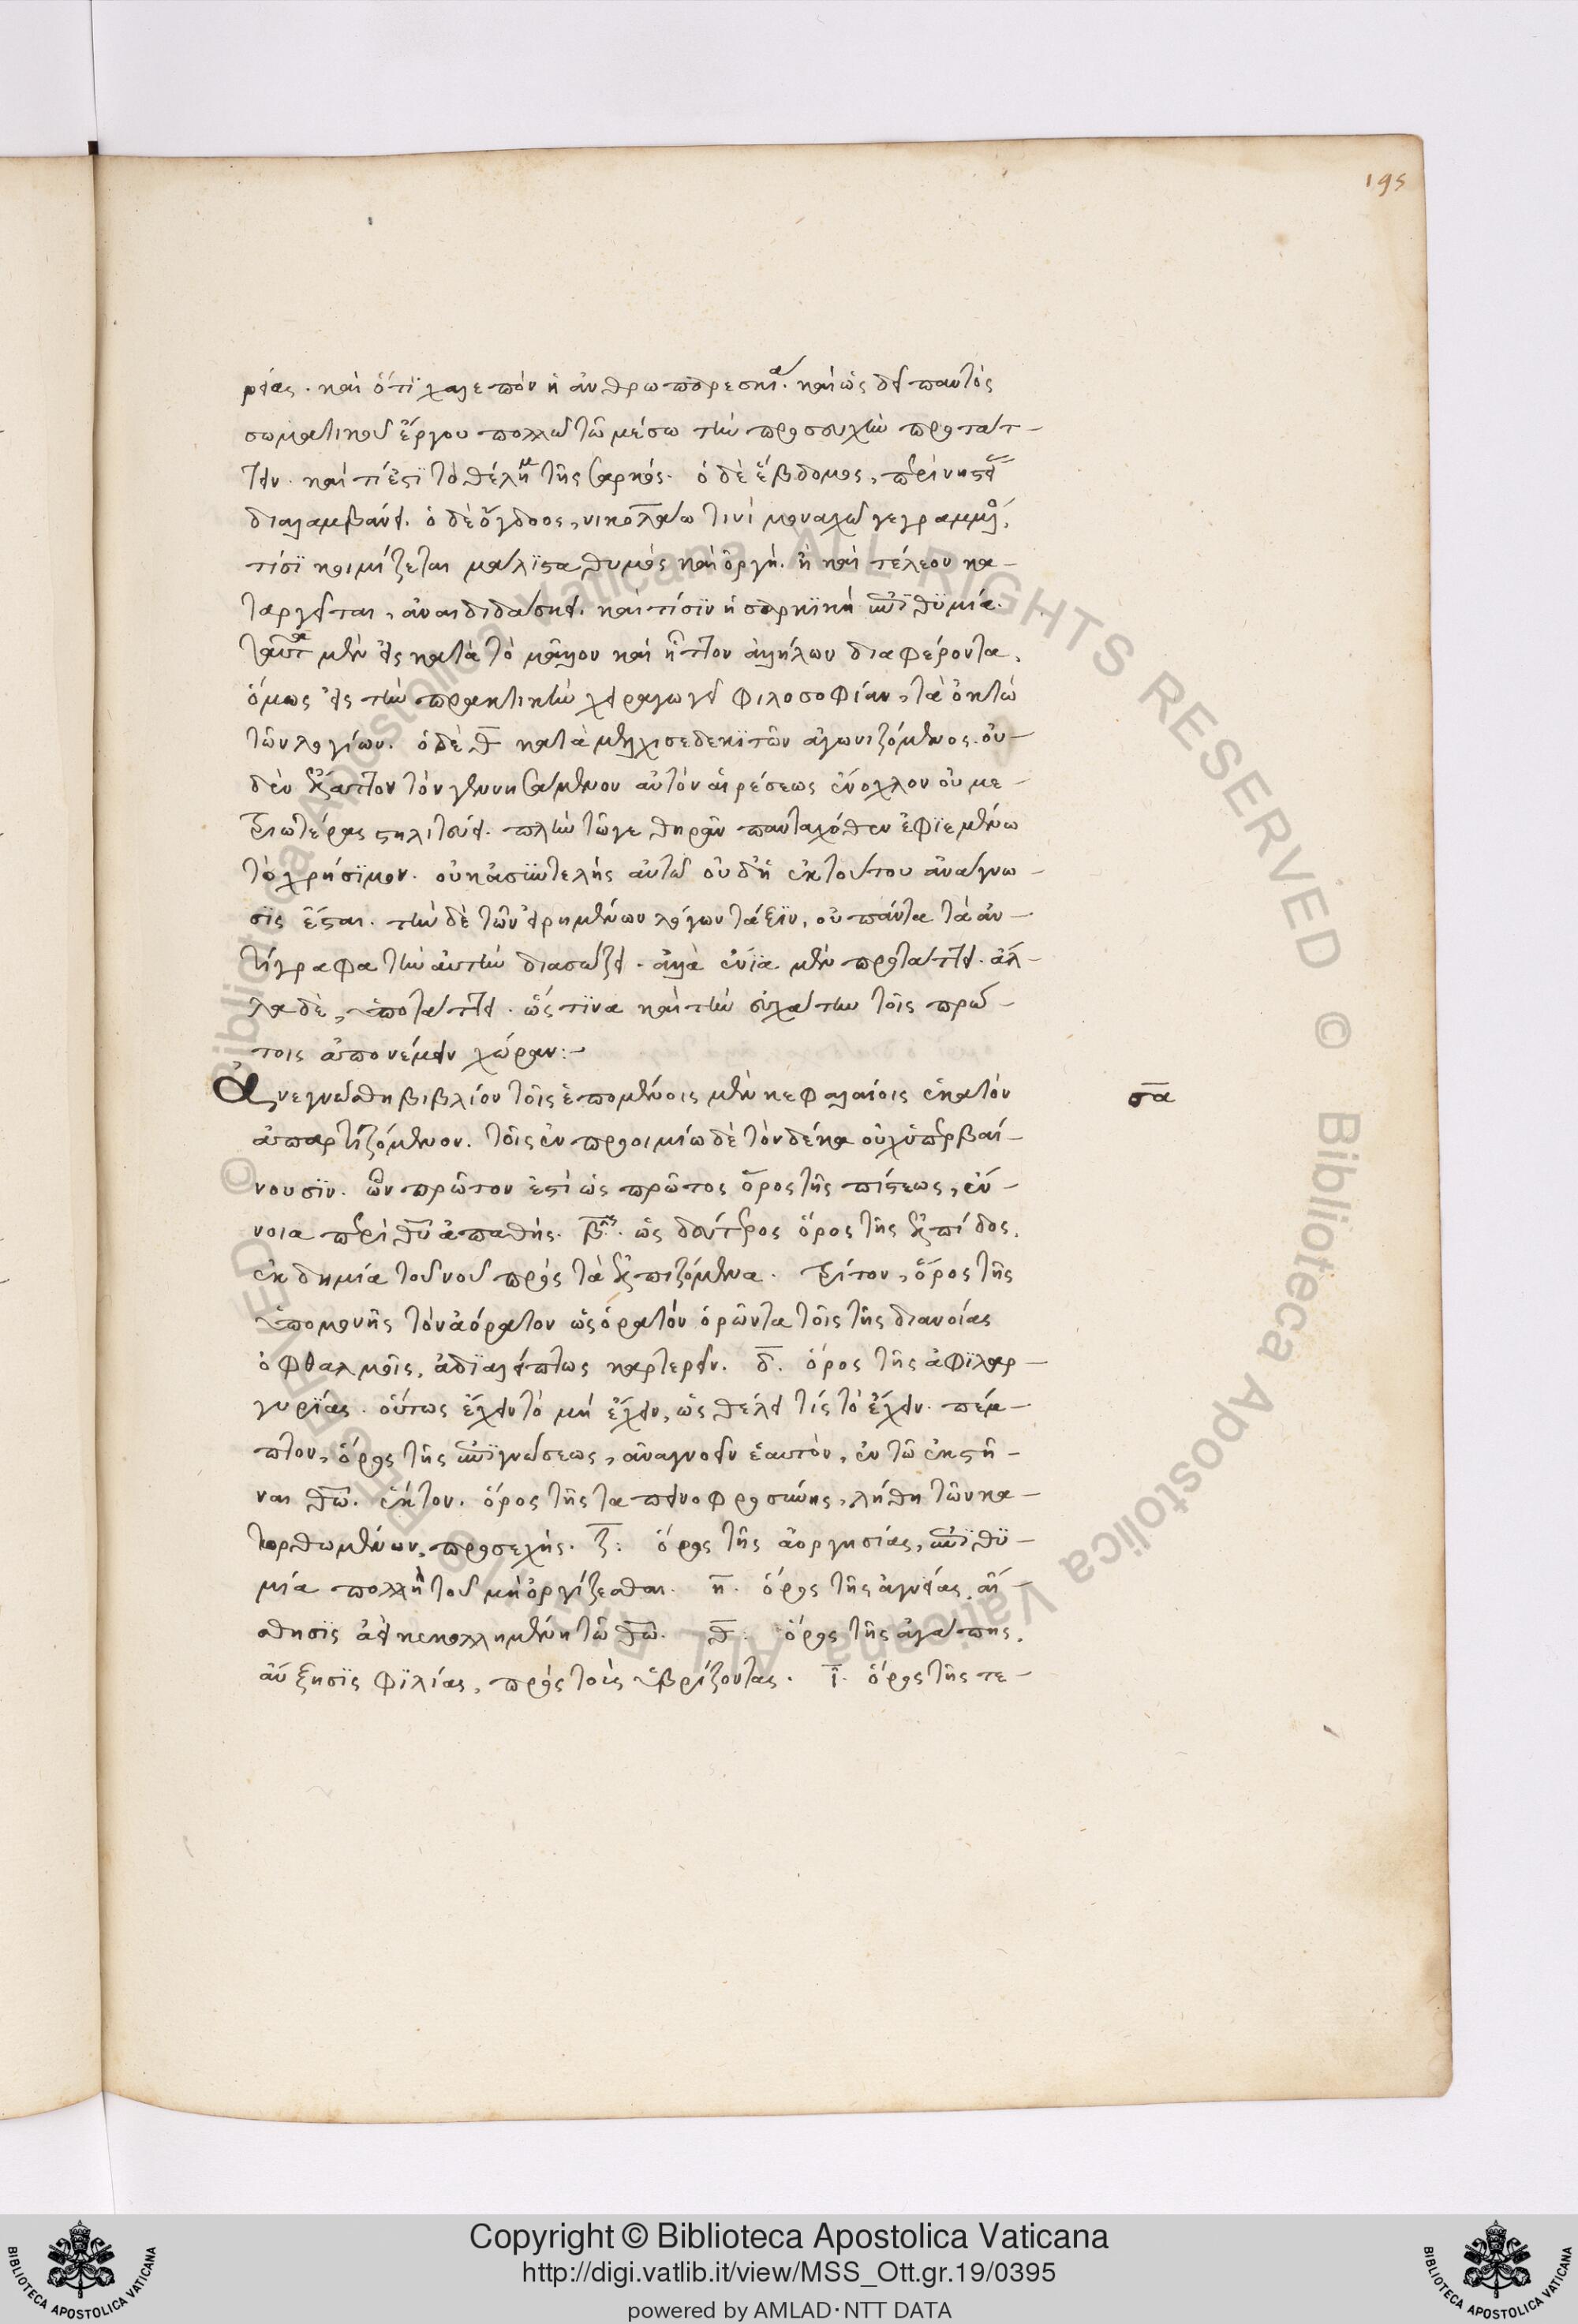 195
ρείας. καὶ ὅτϊ χαλεπὸν ἡ ἀνθρωπαρεσκεία. καὶ ὡς δεῖ παντὸς
σωματικοῦ ἔργου πολλῶ τῶ μέσω τὴν προσευχὴν προτάτ-
τειν. καὶ τί ἐστϊ τὸ θέλημα τῆς σαρκός. ὁ δὲ ἕβδομος, περὶ νηστείας
διαλαμβάνει. ὁ δὲ ὄγδοος, νικολάω τινὶ μοναχῶ γεγραμμένος,
τίσϊ κοιμίζεται μάλϊστα θυμὸς καὶ ὀργή. ἢ καὶ τέλεον κα-
ταργεῖται, ἀναδιδάσκει. καὶ τίσϊν ἡ σαρκϊκὴ ἐπϊθϋμία.
ταῦτα μὲν εἰς κατὰ τὸ μᾶλλον καὶ ἧττον ἀλλήλων διαφέροντα,
ὅμως εἰς τὴν πρακτικὴν χειραγωγεῖ φιλοσοφίαν, τὰ ὀκτὼ
τῶν λογίων. ὁ δὲ θ κατὰ μελχισεδεκϊτῶν ἀγωνιζόμενος. οὐ-
δὲν ἔλαττον τὸν γεννησάμενον αὐτὸν αἱρέσεως ἔνοχλον οὐ με-
τριωτέρας στηλιτεύει. πλὴν τῶ γε θηρᾶν πανταχόθεν ἐφϊεμένω
τὸ χρήσϊμον. οὐκ ἀσϋντελὴς αὐτῶ οὐδ' ἡ ἐκ τούτου ἀνάγνω-
σϊς ἔσται. τὴν δὲ τῶν εἰρημένων λόγων τάξϊν, οὐ πάντα τὰ ἀν-
τίγραφα τὴν αὐτὴν διασώζει. ἀλλὰ ἔνϊα μὲν προτάττει. ἄλ-
λα δὲ, ὑποτάττει. ὥς τϊνα καὶ τὴν ἐσχάτην τοῖς πρώ-
τοις ἀπονέμειν χώραν:-
Ἀνεγνώσθη βιβλίον τοῖς ἑπομένοις μὲν κεφαλαίοις ἑκατὸν
ἀπαρτϊζόμενον. τοῖς ἐν προοιμίω δὲ τὸν δέκα οὐχ ὑπερβαί-
νουσϊν. ὧν πρῶτον ἐστὶ ὡς πρῶτος ὅρος τῆς πίστεως, ἔν-
νοια περὶ θῡ ἀπαθής. β. ὡς δεύτερος ὅρος τῆς ἐλπίδος,
ἐκδημία τοῦ νοῦ πρὸς τὰ ἐλπιζόμενα. τρίτον, ὅρος τῆς
ὑπομονῆς τὸν ἀόρατον ὡς ὁρατὸν ὁρῶντα τοῖς τῆς διανοίας
ὀφθαλμοῖς, ἀδϊαλείπτως καρτερεῖν. δ. ὅρος τῆς ἀφϊλαρ-
γυρϊας. οὕτως ἔχειν τὸ μὴ ἔχειν, ὡς θέλει τὶς τὸ ἔχειν. πέμ-
πτον, ὅρος τῆς ἐπϊγνώσεως, ἀναγνοεῖν ἑαυτὸν, ἐν τῶ ἐκστῆ-
ναι θῶ. ἕκτον. ὅρος τῆς ταπεινοφροσύνης, λήθη τῶν κα-
τορθωμένων, προσεχής. ζ. ὅρος τῆς ἀοργησίας, ἐπϊθϋ-
μία πολλὴ τοῦ μὴ ὀργίζεσθαι. η. ὅρος τῆς ἁγνείας, αἴ-
σθησϊς ἀεὶ κεκολλημένη τῶ θῶ. θ. ὅρος τῆς ἀγάπης,
αὔξησϊς φϊλίας, πρὸς τοὺς ὑβρίζοντας. ϊ. ὅρος τῆς τε-
σα
Copyright © Biblioteca Apostolica Vaticana
http://digi.vatlib.it/view/MSS_Ott.gr.19/0395
powered by AMLAD·NTT DATA